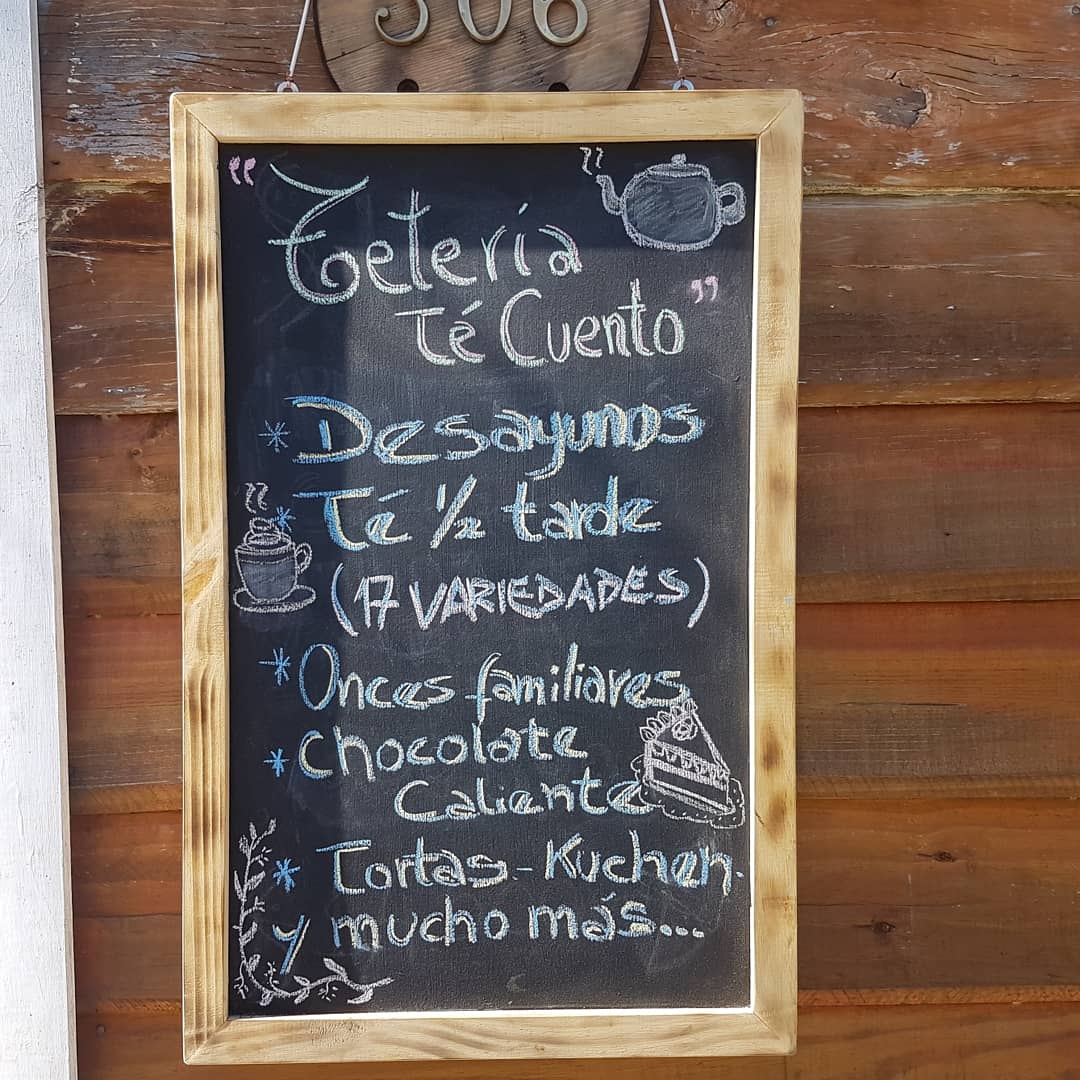 306
“ Tetería
té Cuento ”
* Desayunos
* Té 1/2 tarde
(17 VARIEDADES)
* Onces familiares
* Chocolate
Caliente
* Tortas - Kuchen.
y mucho más...